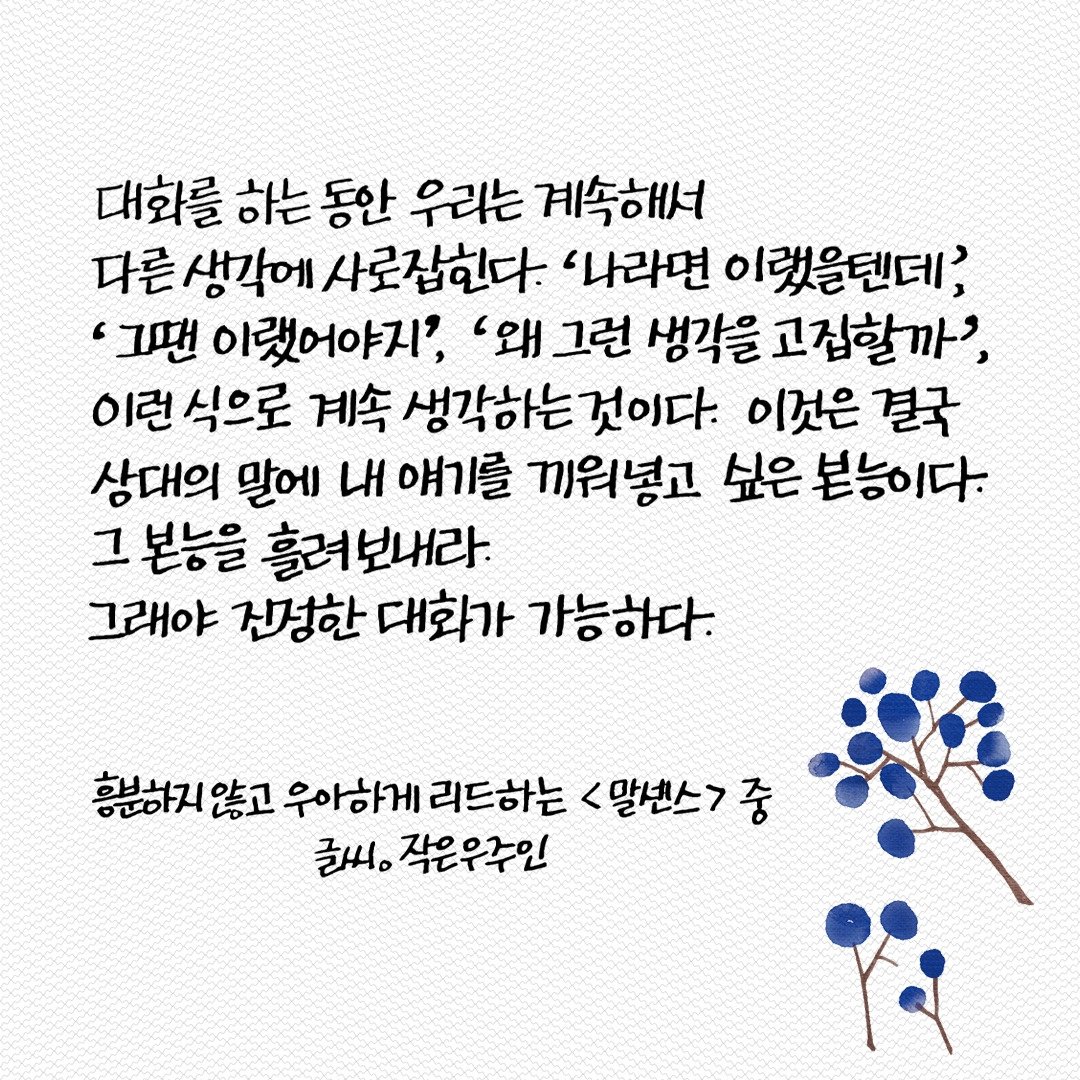 대화를 하는 동안 우리는 계속해서
다른 생각에 사로잡힌다. ‘나라면 이랬을텐데’,
‘그땐 이랬어야지’, ‘왜 그런 생각을 고집할까’,
이런 식으로 계속 생각하는 것이다. 이것은 결국
상대의 말에 내 얘기를 끼워넣고 싶은 본능이다.
그 본능을 흘려보내라.
그래야 진정한 대화가 가능하다.
흥분하지 않고 우아하게 리드하는 <말센스> 중
글씨。작은우주인